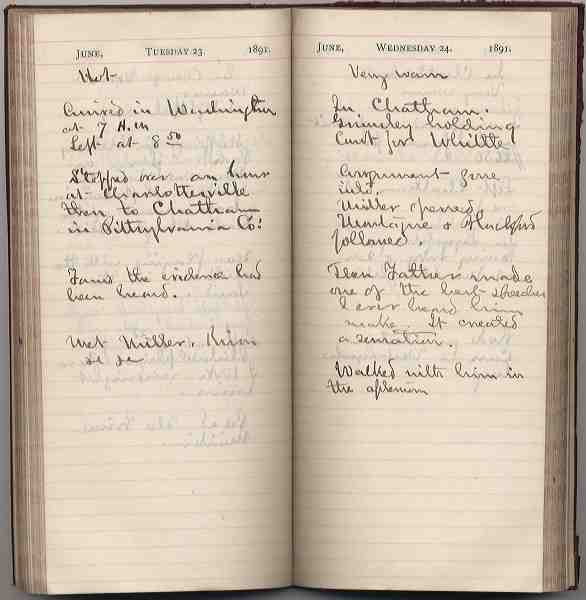 JUNE, TUESDAY 23. 1891.
Hot
Arrived in Washington
at 7 A.M
Left at 8 50
Stopped over an hour
at Charlottesville
then to Chatham
in Pittsylvania Co:
Found the evidence had
been heard.
Met Miller,
JUNE, WEDNESDAY 24. 1891.
Very warm
In Chatham.
Grimsley holding
Court for Whittle
Argument fine
Miller opened
Montague & Blackford
followed.
Then Father made
one of the best speeches
I ever heard him
make. It created
a sensation.
Walked with him in
the afternoon